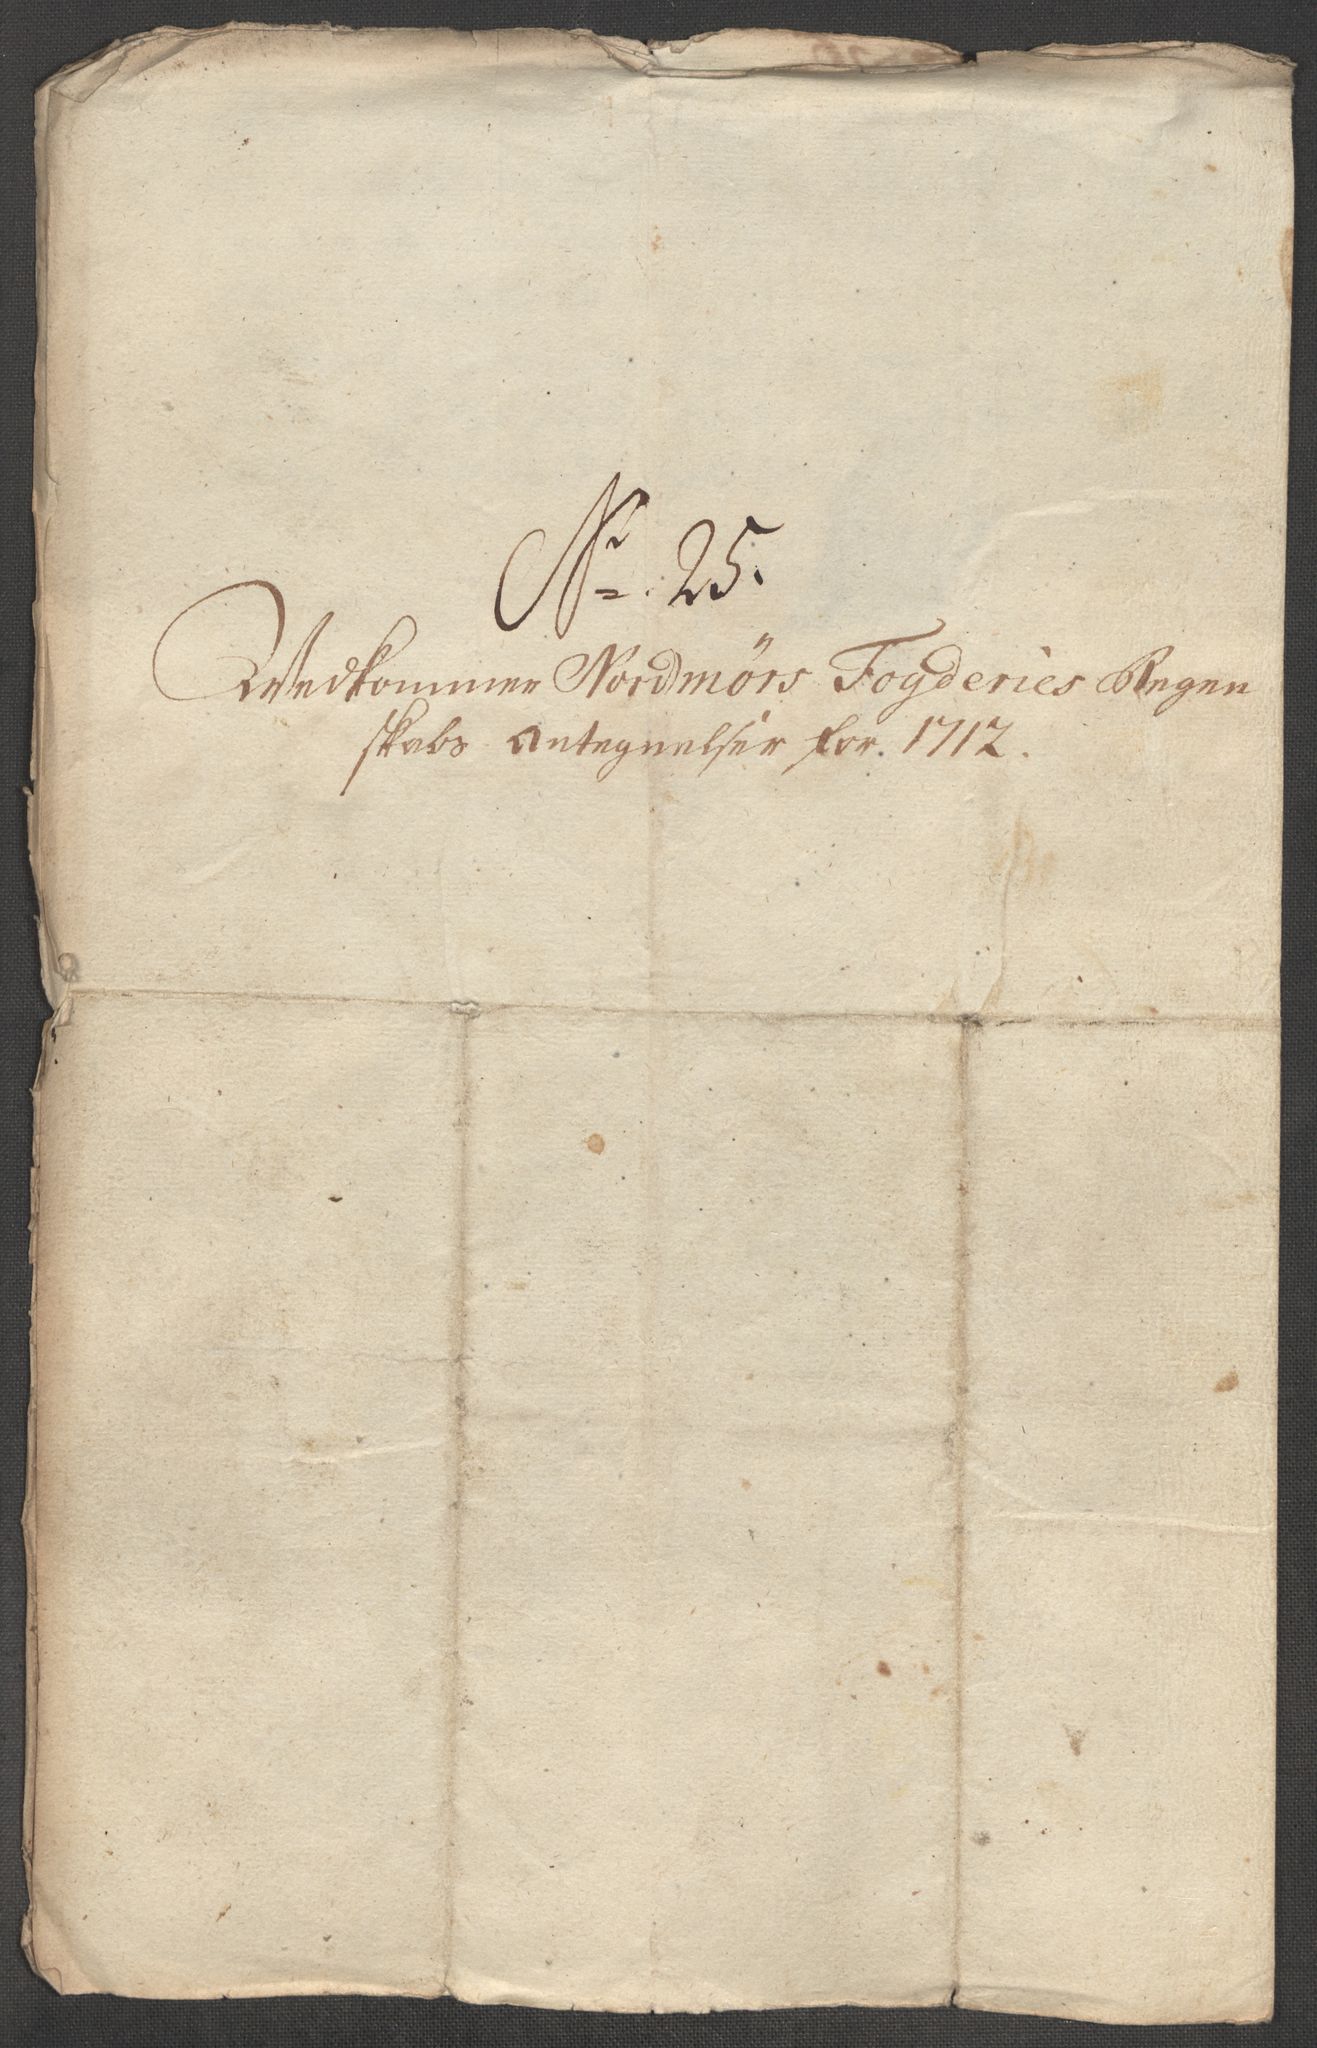 No. 25.
Wedkommer Nordmørs Fogderies Regen
skabs Antegnelser for. 1712.